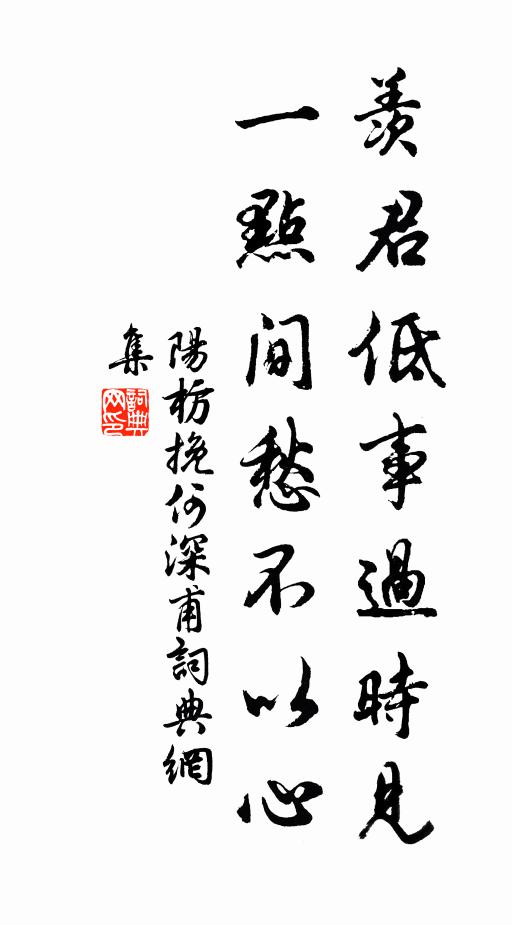 羨君低事過時見
一點閒愁不以心
陽枋挽何深甫詞典網
集
詞典
網印